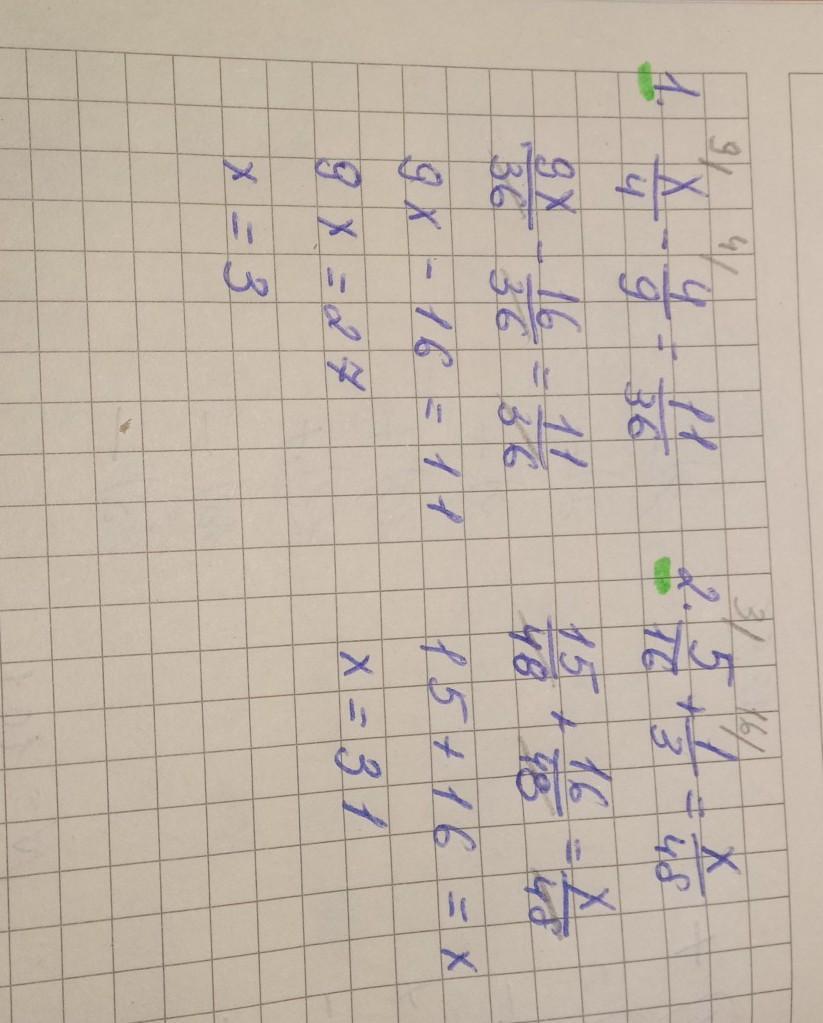 9/ 4/
1. x/4 - 4/9 = 11/36
9x/36 - 16/36 = 11/36
9x - 16 = 11
9x = 27
x = 3
3/ 16/
2. 5/16 + 1/3 = x/48
15/48 + 16/48 = x/48
15 + 16 = x
x = 31